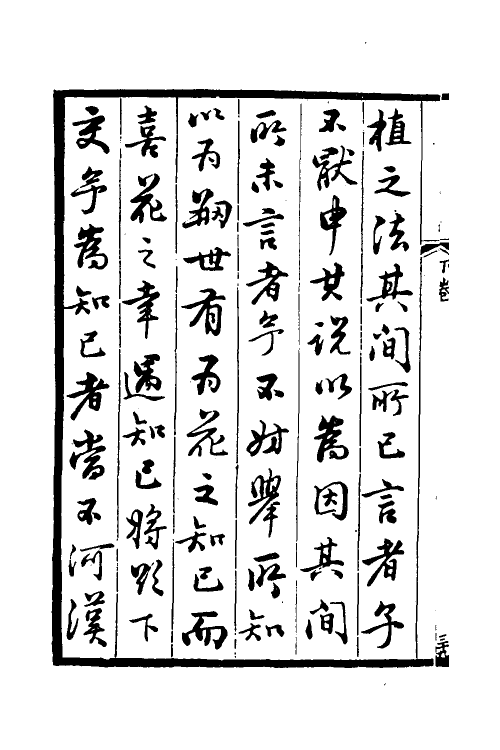 植之法其间所已言者予
不厭申其说以為因其间
所未言者予不妨舉所知
以为
世有为花之知已而
喜花之幸遇知已將
下
交予為知已者當不河漢
下卷
三十